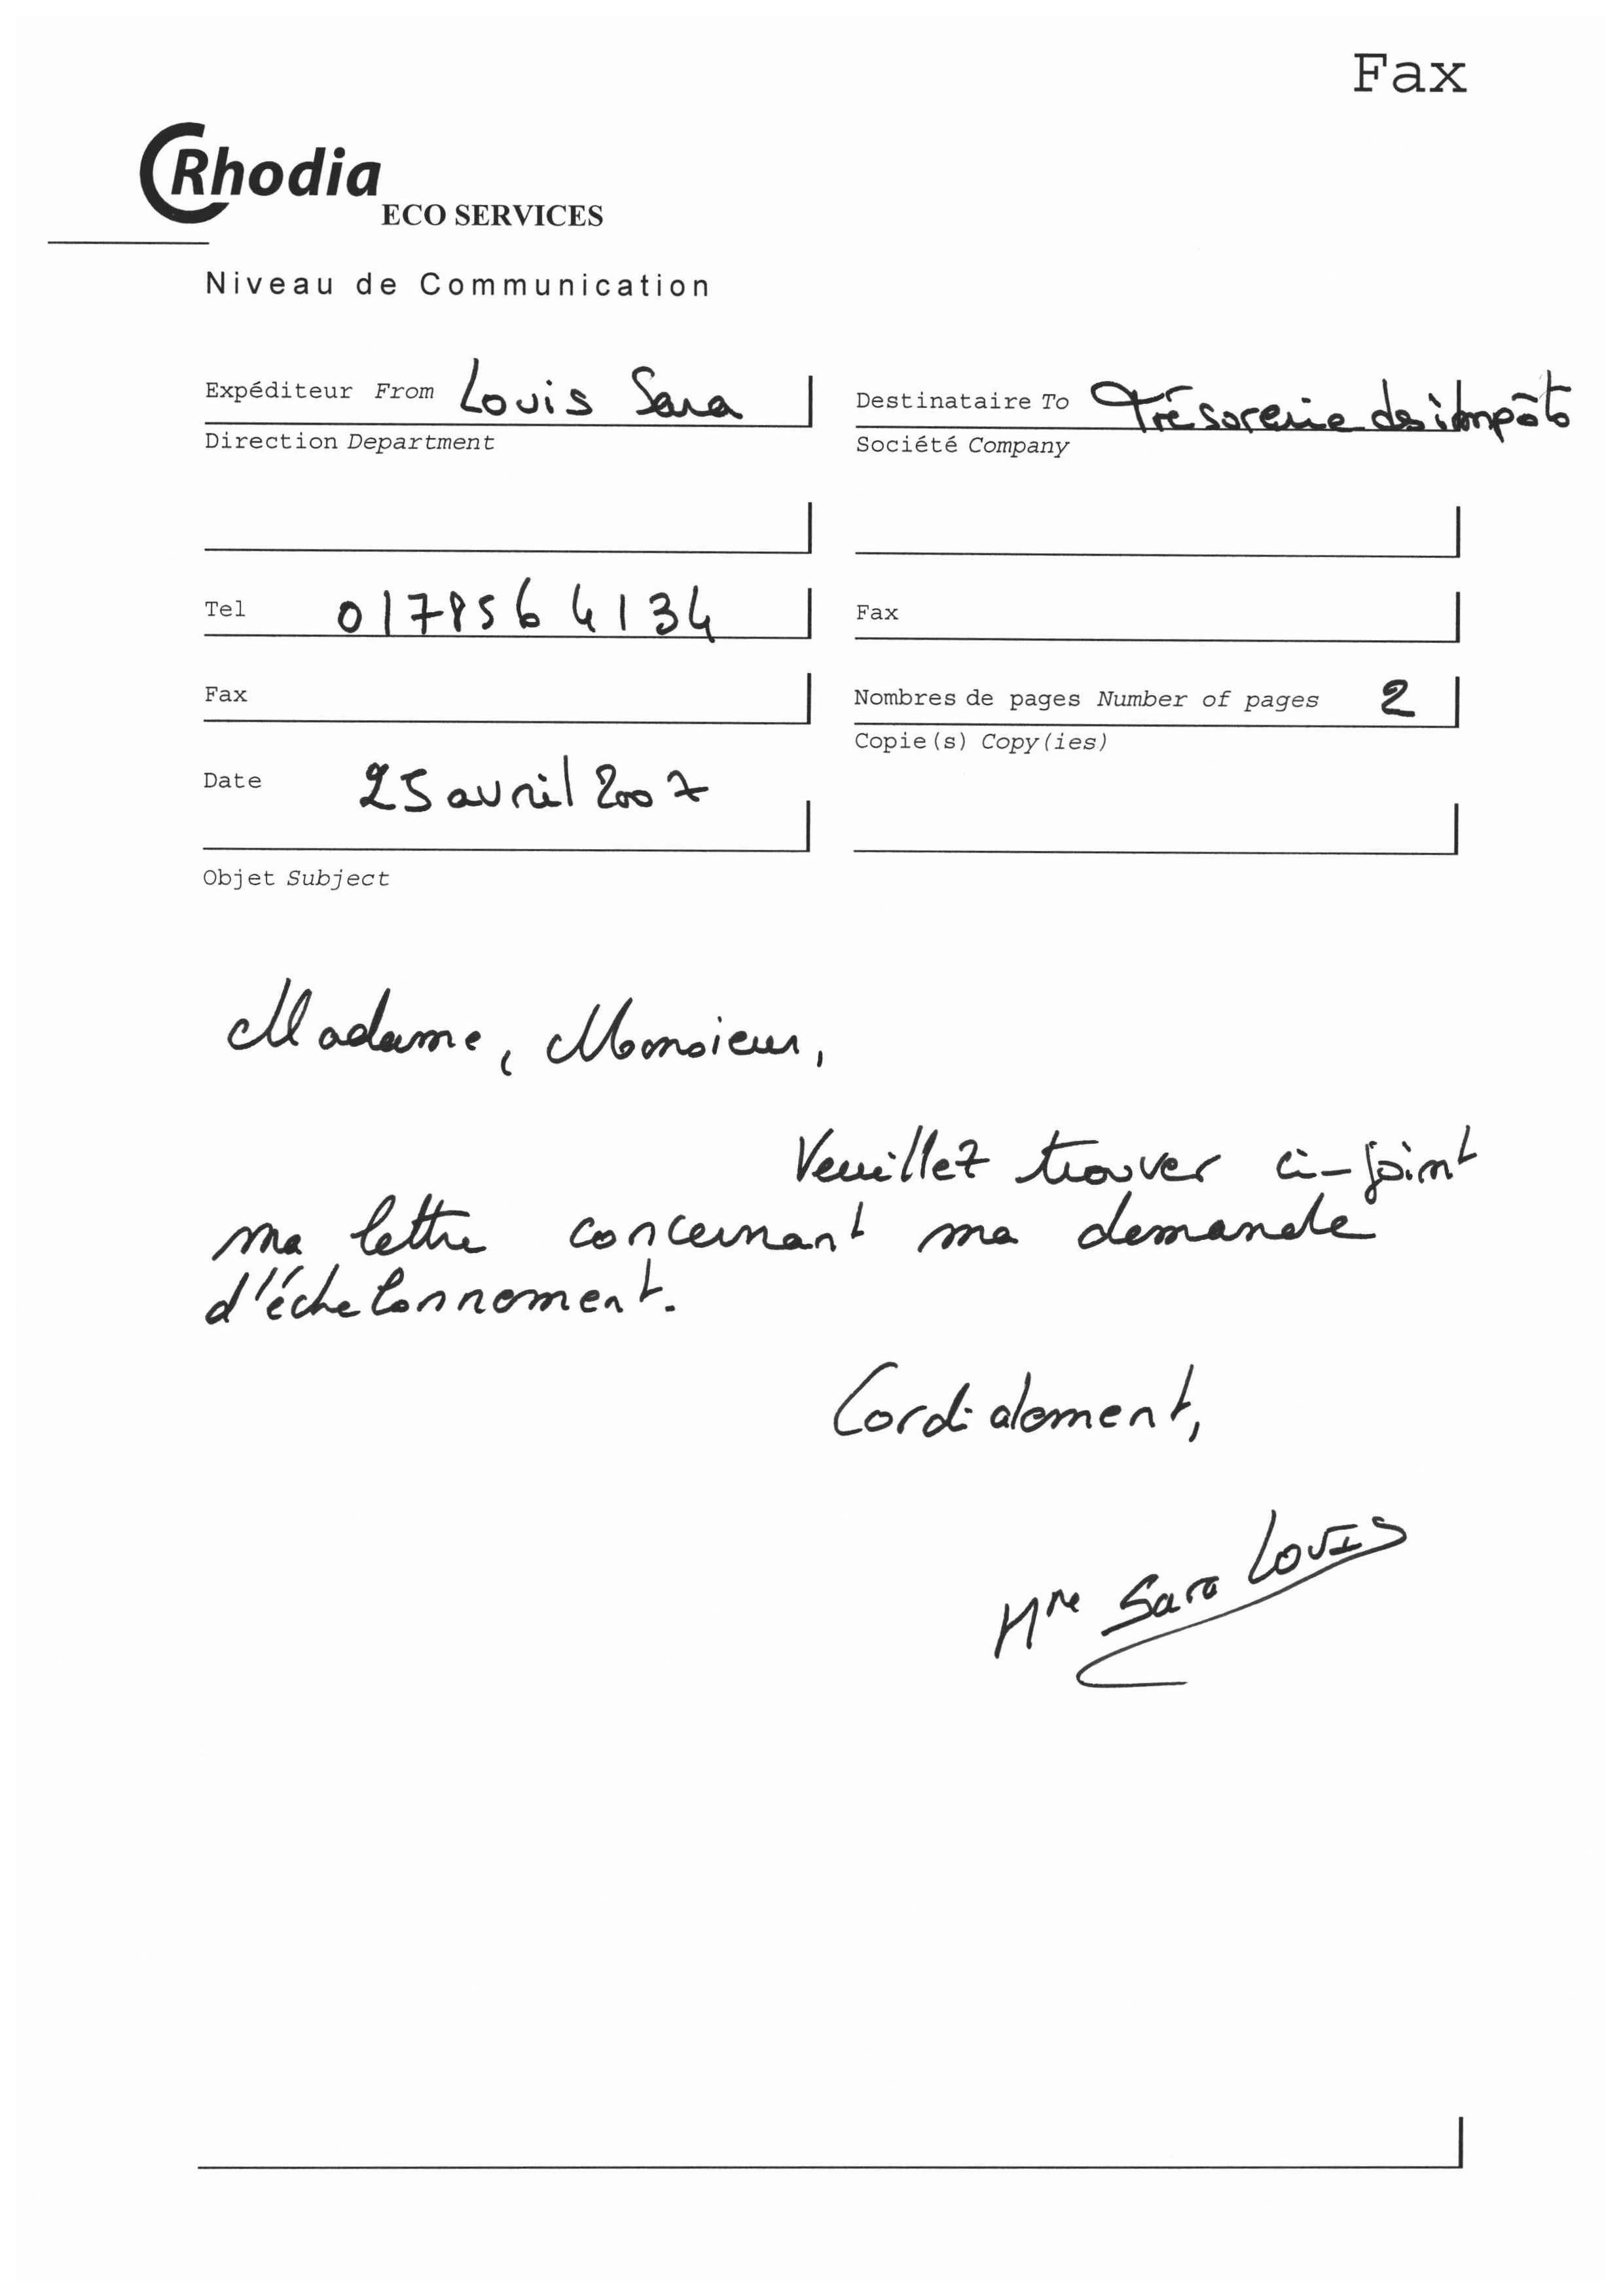 Fax
Rhodia
ECO SERVICES
Niveau de Communication
Expéditeur From Louis Sara
Destinataire To Trésorerie des impôts
Direction Department
Société Company
Tel 0178564134
Fax
Fax
Nombres de pages Number of pages 2
Copie(s) Copy(ies)
Date 25 avril 2007
Objet Subject
Madame, Monsieur,
Veuillez trouver ci-joint
ma lettre concernant ma demande
d'échelonnement.
Cordialement,
Mme Sara LOUIS